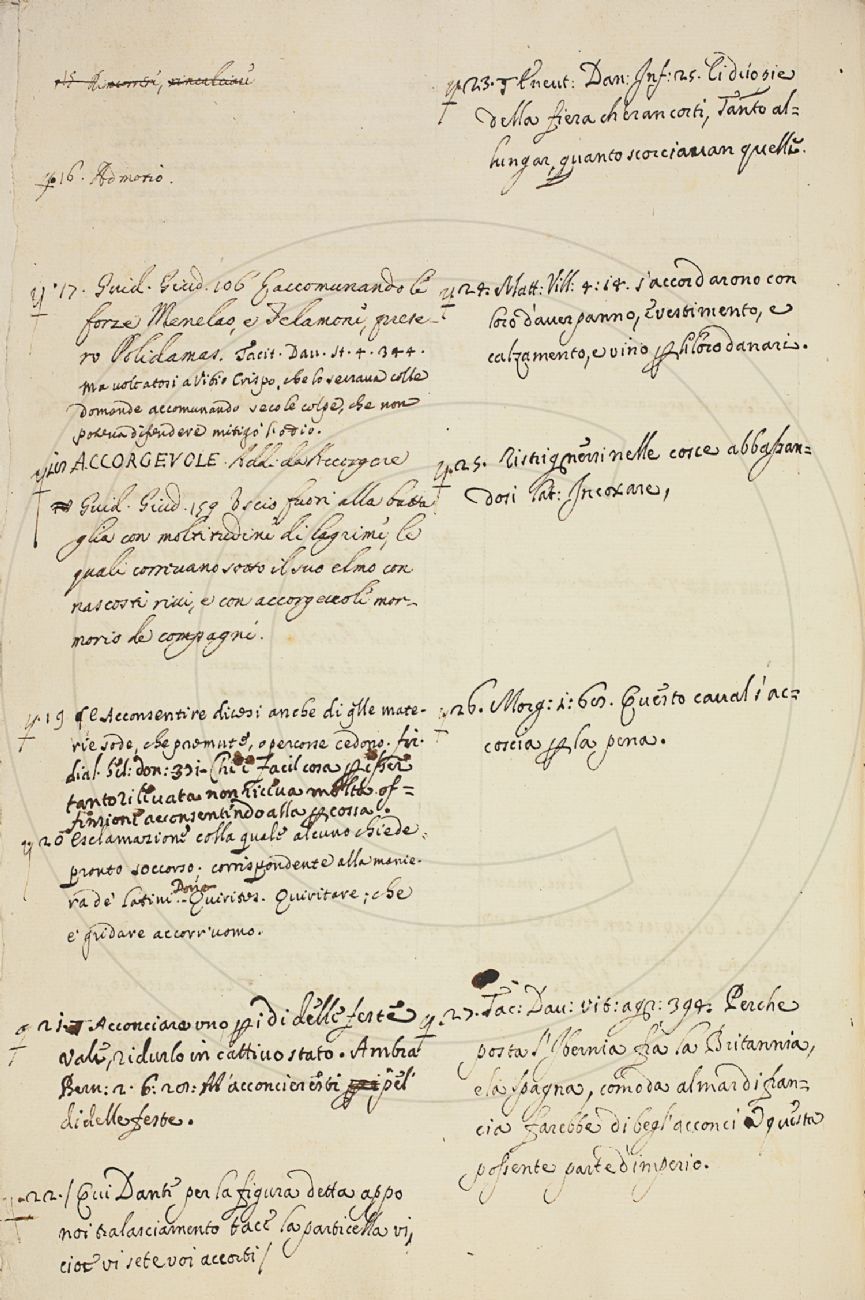 15
16. Admorio.
17. Guid. Giud. 106 E accomunando le
forze Menelao, e Telamone, prese-
ro Polidamas. Tacit. Dav. St. 4. 344.
ma voltatosi a Vibio Crispo, che lo serrava colle
domande accomunando seco le colpe, che non
poteva difendere mitigò l'odio.
18 ACCORGEVOLE. Add. da Accorgere
Guid. Giud. 159 Uscio fuori alla batta
glia con moltitudine di lagrime, le
quali correvano sotto il suo elmo con
nascosti rivi, e con accorgevole mor-
morio de compagni.
19 Acconsentire dicesi anche di qlle mate-
rie sode, che premute, o percosse cedono.
dial. bel. don: 391. Che è facil cosa essere
tanto rilevata non riceva molta of-
fensione acconsentindo alla
20 Esclamazione colla quale alcuno chiede
pronto soccorso; corrispondente alla manie-
ra de' Latini Quirites. Quiritare; che
e' gridare accorr'uomo.
21. Acconciare uno p i di delle feste
vale, ridurlo in cattivo stato. Ambra
Bern: 2. 6: M'acconcieresti pel
di delle feste.
22. / Qui Dante per la figura detta appo
noi tralasciamento tace la particella vi,
cioe vi sete voi accorti /
23. Dan: Inf: 25. Li duo pie
della fiera ch'eran corti, Tanto al=
lungar, quanto scorciavan quelle.
24. Matt: Vill: 4: 14. s'accordarono con
loro d'aver panno, e vestimento, e
calzamento, e vino p li loro danari.
25. Ristrignersi nelle cosce abbassan=
dosi Lat: Incoxare,
26. Morg: 1: 60. Questo caval s'ac-
coscia p la pena.
27. Tac: Dav: vit: agr: 394. Perche
posta l'Ibernia fra la Britannia,
e la Spagna, comoda al mar di Fran-
cia farebbe di begl'acconci a questa
possente parte d'imperio.